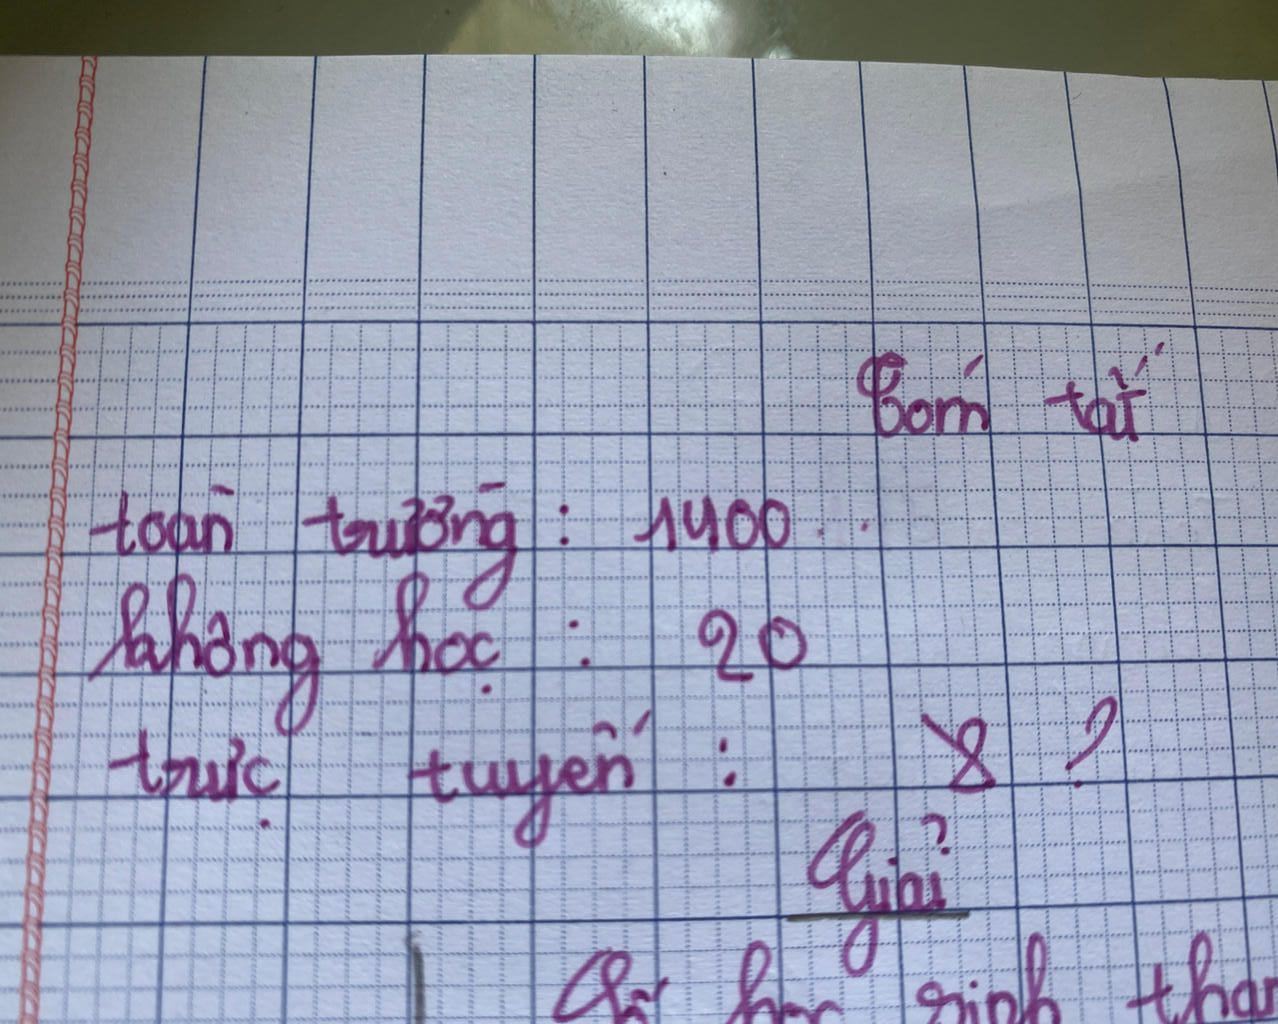 Tóm tắt
toàn trường : 1400 . .
không học : 20
trực tuyến : 8 ?
Giải
Số học sinh tham